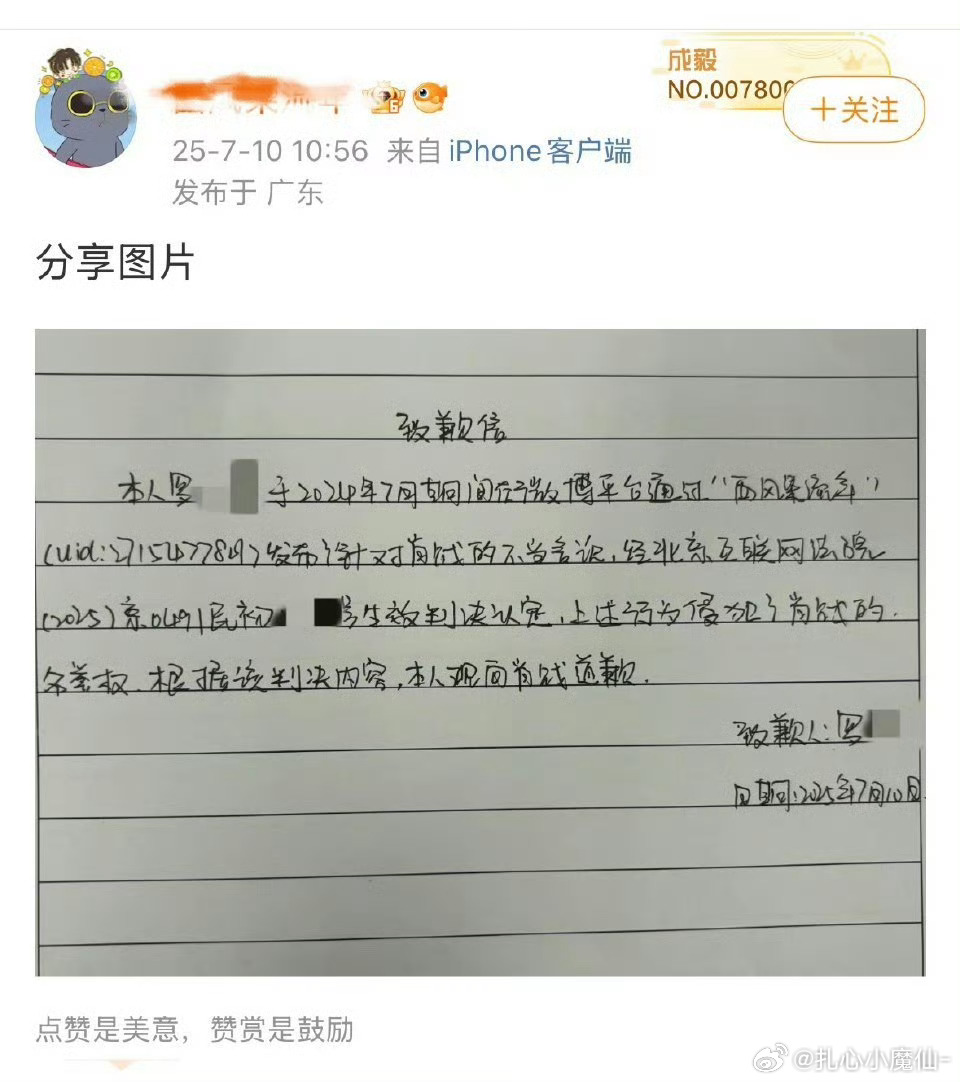 成毅
NO.007800
+关注
25-7-10 10:56 来自 iPhone客户端
发布于 广东
分享图片
致歉信
本人罗 于2024年7月期间在微博平台通过“西风果流年”
(uid:2715477849)发布了针对肖战的不当言论,经北京互联网法院
(2025)京0491民初 号生效判决认定,上述行为侵犯了肖战的
名誉权.根据该判决内容,本人现向肖战道歉.
致歉人:罗
日期:2025年7月10日
点赞是美意,赞赏是鼓励
@扎心小魔仙-